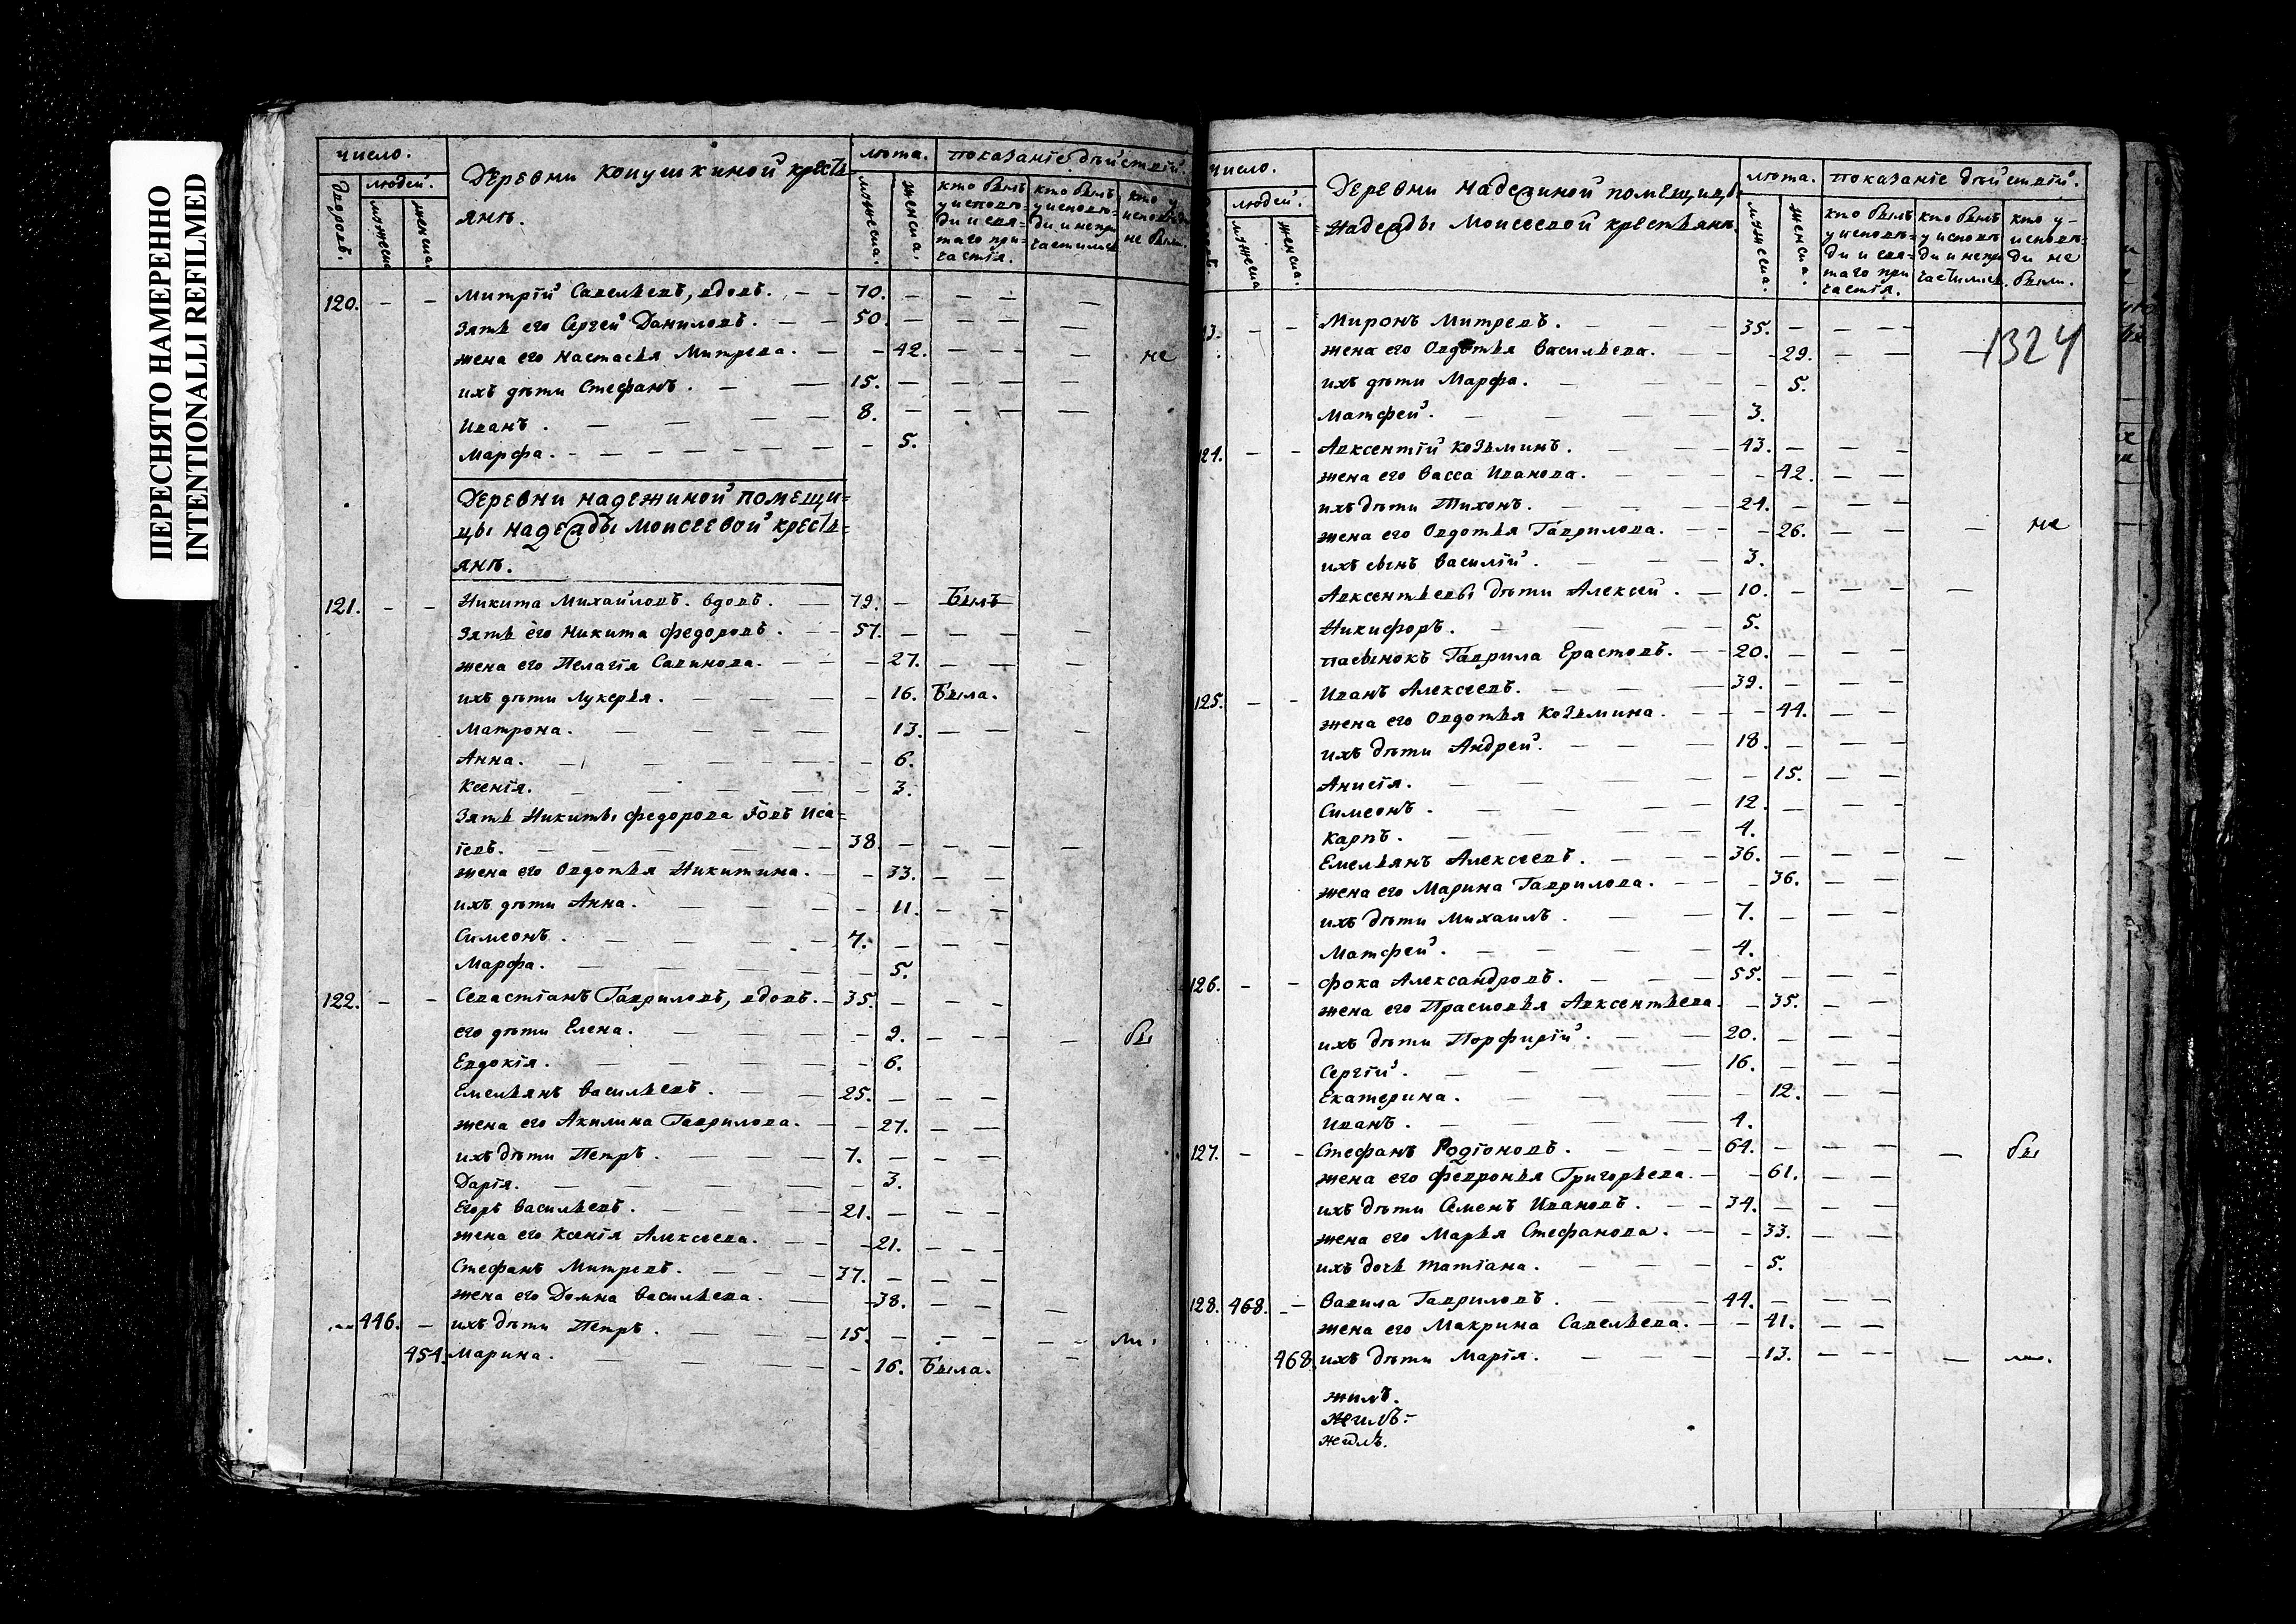 ПЕРЕСНЯТО НАМЕРЕННО
INTENTIONALLI REFILMED
число. Деревни Копушкиной кресть= лѣта. показаніе дѣйствій.
янъ.
дворовъ. людей. мужеска. женска. мужеска. женска. кто былъ у исповѣди и святаго причастія. кто былъ у исповѣди и непричастился кто у исповѣди не былъ.
120. – – Митрій Савельевъ, вдовъ. 70.
Зять его Сергей Даниловъ. 50.
жена его Настасья Митрева. 42. не
ихъ дѣти Стефанъ. 15.
Иванъ. 8.
Марфа. 5.
Деревни Надежиной помещи=
цы Надежды Моисеевой кресть=
янъ.
121. – – Никита Михайловъ. вдовъ. 79. Былъ
Зять его Никита Федоровъ. 57.
жена его Пелагія Савинова. 27.
ихъ дѣти Лукерья. 16. Была.
Матрона. 13.
Анна. 6.
Ксенія. 3.
Зять Никиты Федорова Іовъ Иса=
іевъ. 38.
жена его Овдотья Никитина. 33.
ихъ дѣти Анна. 11.
Симеонъ. 7.
Марфа. 5.
122. – – Севастіанъ Гавриловъ, вдовъ. 35.
его дѣти Елена. 9. бы
Евдокія. 6.
Емельянъ Васильевъ. 25.
жена его Акилина Гаврилова. 27.
ихъ дѣти Петръ. 7.
Дарія. 3.
Егоръ Васильевъ. 21.
жена его Ксенія Алексѣева. 21.
Стефанъ Митревъ. 37.
жена его Домна Васильева. 38.
446. – ихъ дѣти Петръ. 15. ли
454. Марина. 16. Была.
число. Деревни Надежиной помещицы лѣта. показаніе дѣйствій.
Надежды Моисеевой крестьянъ.
людей. мужеска женска. мужеска. женска. кто былъ у исповѣди и святаго причастія. кто былъ у исповѣди и непричастился. кто у исповѣди не былъ.
1324
Миронъ Митревъ. 35.
жена его Овдотья Васильева. 29.
ихъ дѣти Марфа. 5.
Матфей. 3.
124. – – Авксентій Козьминъ. 43.
жена его Васса Иванова. 42.
ихъ дѣти Тихонъ. 24.
жена его Овдотья Гаврилова. 26. не
ихъ сынъ Василій. 3.
Авксентьевы дѣти Алексѣй. 10.
Никифоръ. 5.
пасынокъ Гаврила Ерастовъ. 20.
125. – – Иванъ Алексѣевъ. 39.
жена его Овдотья Козьмина. 44.
ихъ дѣти Андрей. 18.
Анисія. 15.
Симеонъ. 12.
Карпъ. 4.
Емельянъ Алексѣевъ. 36.
жена его Марина Гаврилова. 36.
ихъ дѣти Михаилъ. 7.
Матфей. 4.
126. – – Фока Александровъ. 55.
жена его Прасковья Авксентьева. 35.
ихъ дѣти Порфирій. 20.
Сергій. 16.
Екатерина. 12.
Иванъ. 4.
127. – – Стефанъ Родіоновъ. 64. бы
жена его Февронья Григорьева. 61.
ихъ дѣти Семенъ Ивановъ. 34.
жена его Марья Стефанова. 33.
ихъ дочь Татіана. 5.
128. 468. – Вавила Гавриловъ. 44.
жена его Макрина Савельева. 41.
468 ихъ дѣти Марія. 13. ли.
жилъ.
жилъ.
жилъ.